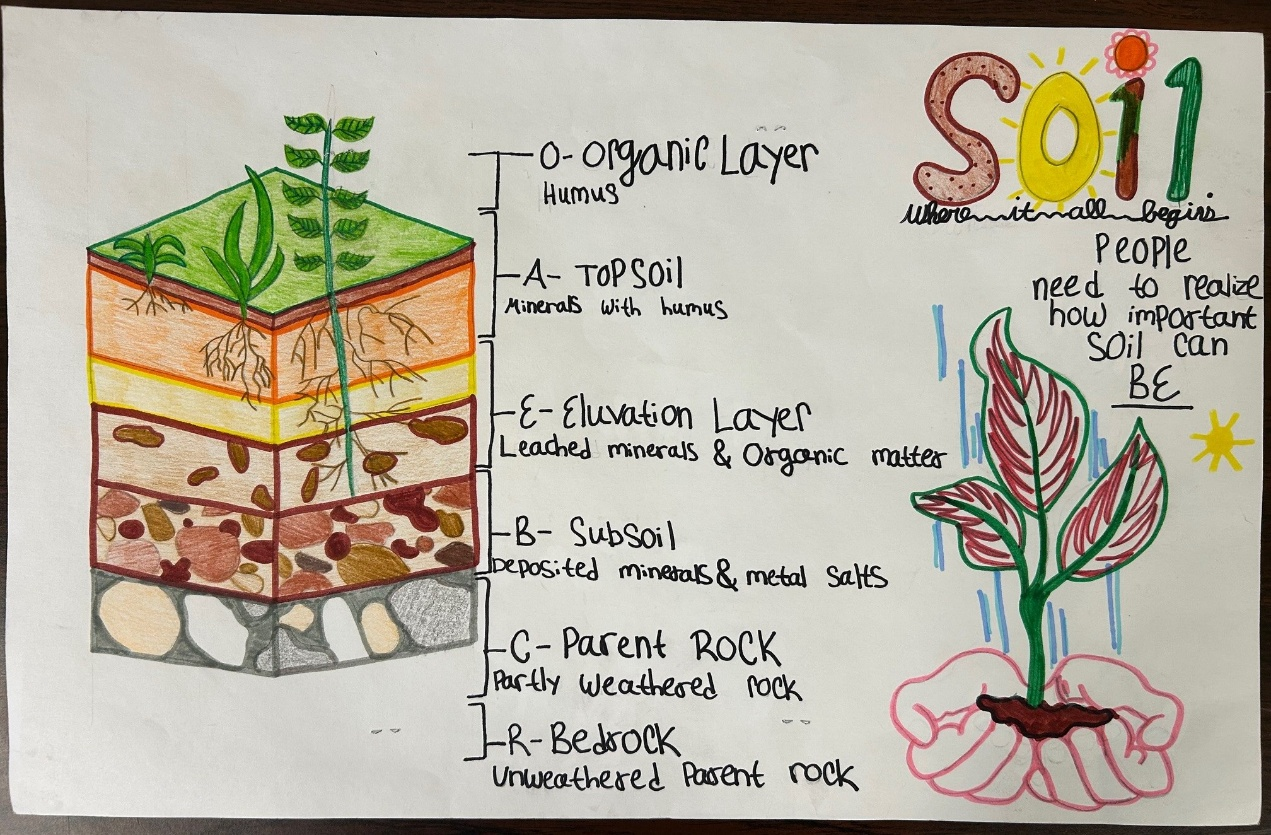 O- Organic Layer
Humus
A- TOPSOil
Minerals with humus
E- Eluvation Layer
Leached minerals & Organic matter
B- SubSoil
Deposited minerals & metal salts
C- Parent ROCK
Partly weathered rock
R- Bedrock
Unweathered Parent rock
SOil
where it all begins
PEOPLE
need to realize
how important
SOil can
BE